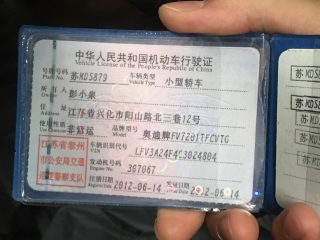 中华人民共和国机动车行驶证
Vehicle License of the People's Republic of China
号牌号码 苏MD5879 车辆类型 小型轿车
Plate No. Vehicle Type
所有人 彭小泉
Owner
住址 江苏省兴化市阳山路北三巷12号
Address
使用性质 非营运 品牌型号 奥迪牌FV7201TFCVTG
江苏省泰州
市公安局交通
巡逻警察支队
车辆识别代号 LFV3A24F4C3024804
VIN
发动机号码 307067
Engine No.
注册日期 2012-06-14 发证日期 2012-06-14
Register Date Issue Date
苏MD5
苏MD58